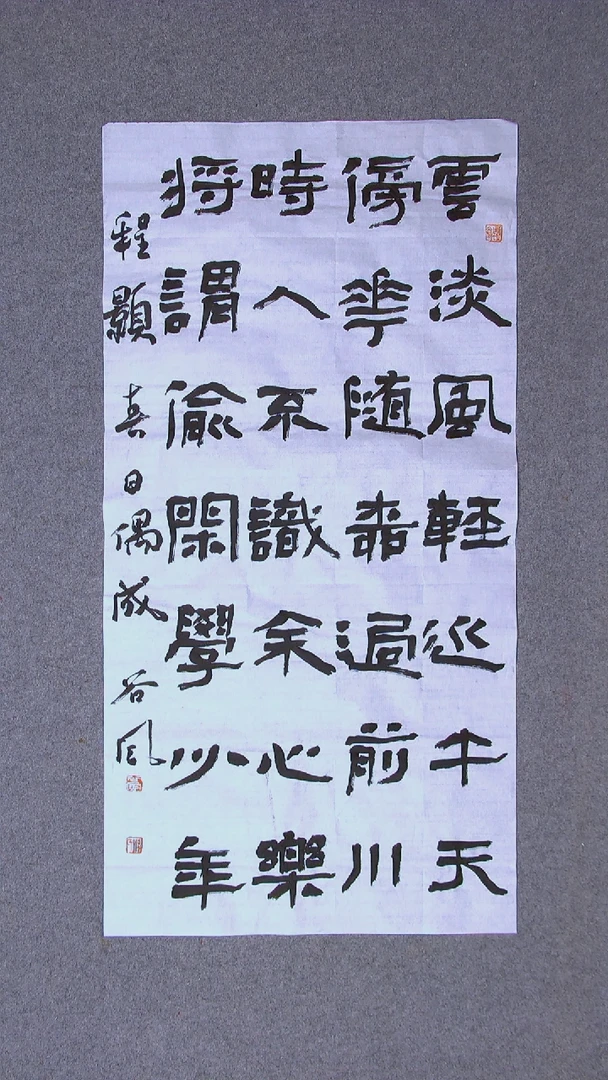 雲淡風輕近午天
傍花隨柳過前川
時人不識余心樂
將謂偷閑學少年
程顥 春日偶成 谷風